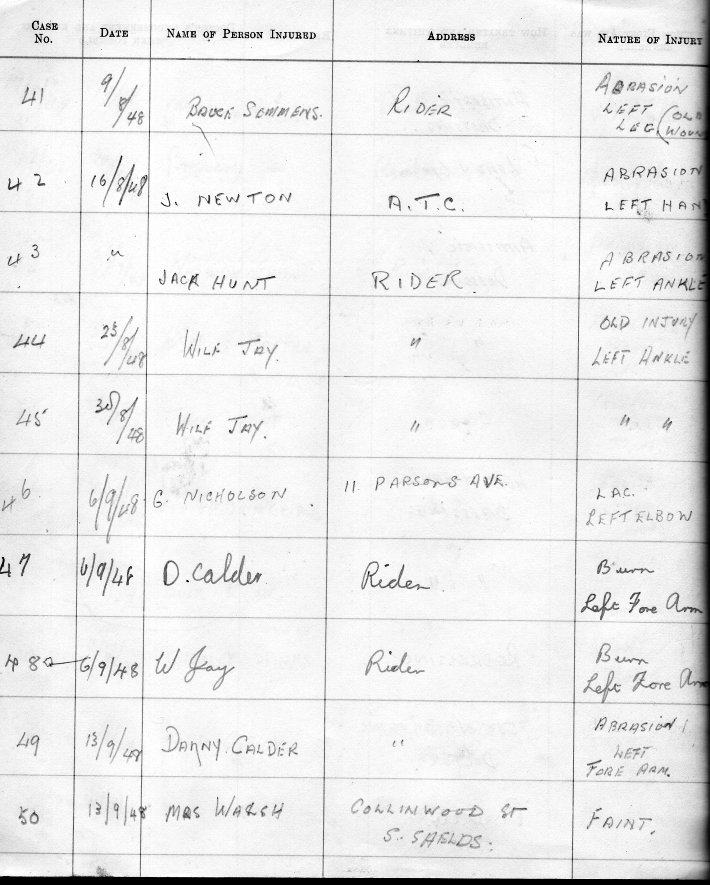 CASE No. DATE NAME OF PERSON INJURED ADDRESS NATURE OF INJURY
41 9/8/48 BRUCE SEMMENS. RIDER ABRASION
LEFT
LEG (OLD
WOUN
42 16/8/48 J. NEWTON A.T.C. ABRASION
LEFT HAN
43 " JACK HUNT RIDER. ABRASION
LEFT ANKLE
44 23/8/48 WILF JAY. " OLD INJURY
LEFT ANKLE
45 30/8/48 WILF JAY. " " "
46 6/9/48 G. NICHOLSON 11 PARSONS AVE. LAC.
LEFT ELBOW
47 6/9/48 D. Calder Rider Burn
Left Fore Arm
48 6/9/48 W Jay Rider Burn
Left Fore Arm
49 13/9/48 DANNY. CALDER " ABRASION
LEFT
FORE ARM.
50 13/9/48 MRS WALSH COLLINWOOD ST
S. SHELDS. FAINT.